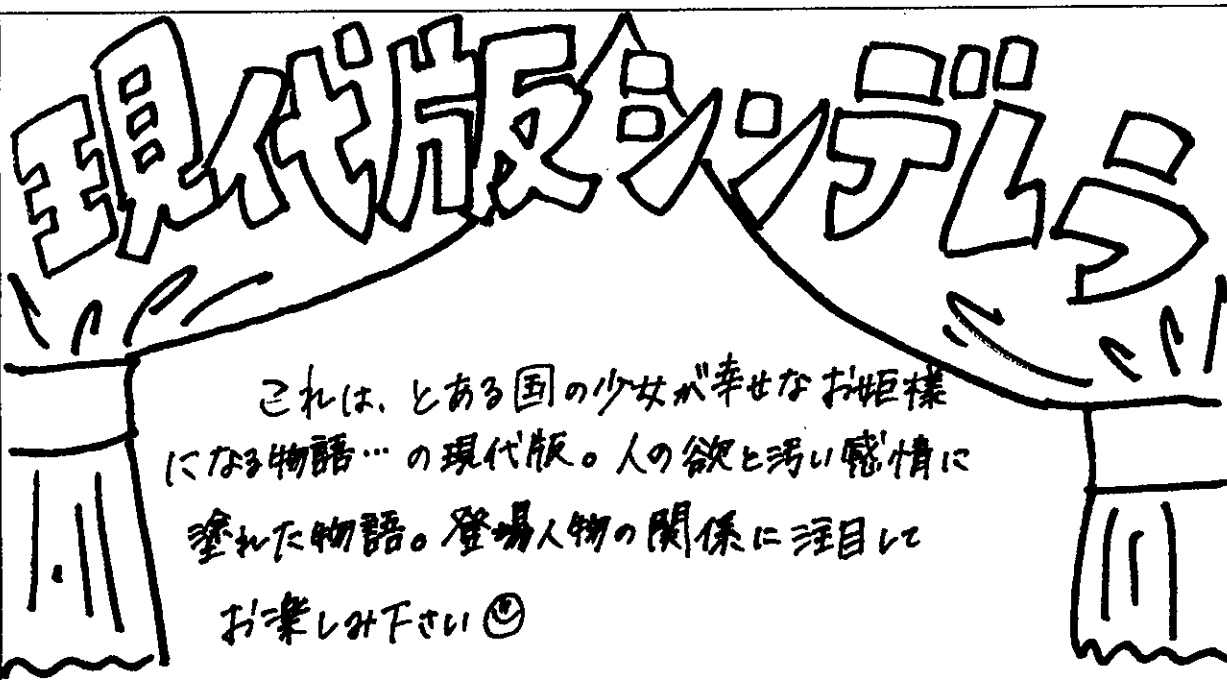 現代版シンデレラ
これは、とある国の少女が幸せなお姫様
になる物語…の現代版。人の欲と汚い感情に
塗れた物語。登場人物の関係に注目して
お楽しみ下さい